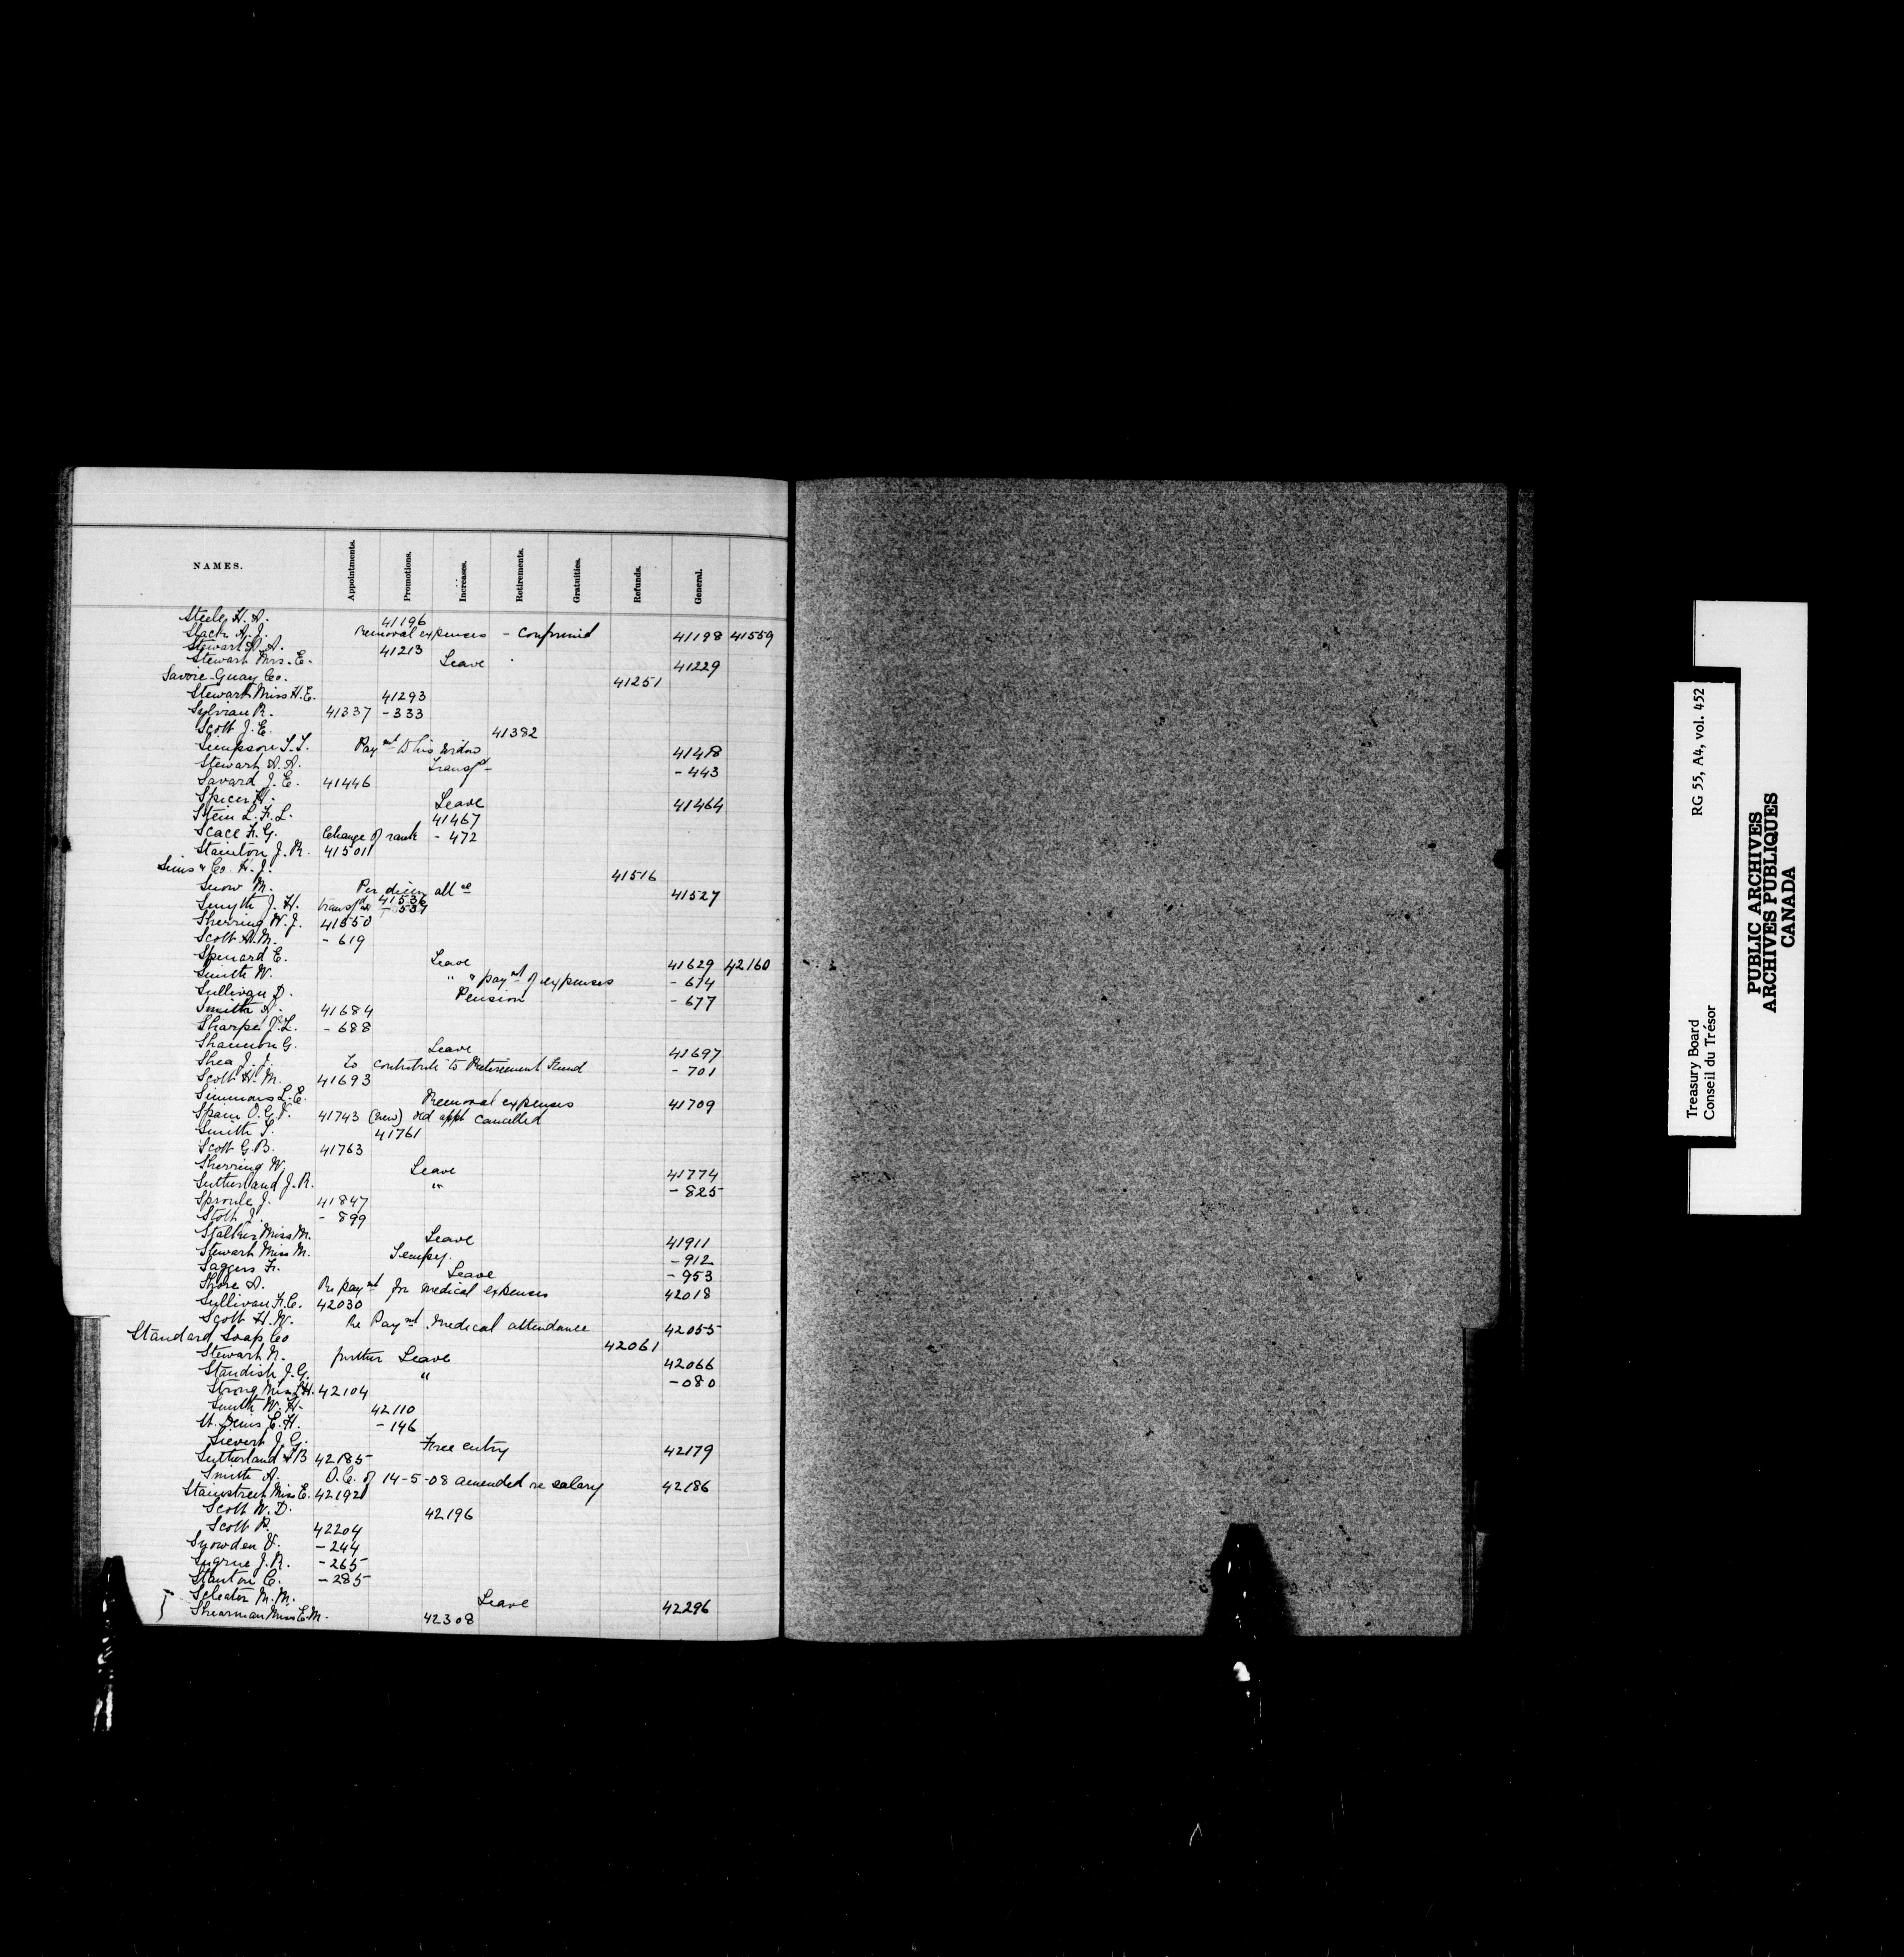 NAMES. Appointments. Promotions. Increases. Retirements. Gratuities. Refunds. General.
Steele H. A. 41196
Slack A. J. Removal expenses - Confirmed 41198 41559
Stewart A. A. 41213
Stewart Mrs. E. Leave 41229
Savore-Guay Co. 41251
Stewart Miss H. E. 41293
Sylvian R. 41337 - 333
Scott J. E. 41382
Simpson T. T. Paymt to his widow 41418
Stewart A. A. Transfd - 443
Savard J. E. 41446
Spicer H. Leave 41464
Stein L. F. L. 41467
Scace F. G. Change of rank - 472
Stainton J. R. 41501
Sims & Co. H. J. 41516
Snow M. Per diem allce 41527
Smyth J. H. transfd 41536 - 537
Sherring W. J. 41550
Scott A. M. - 619
Spenard E. Leave 41629 42160
Smith W. " & paymt of expenses - 674
Sullivan D. Pension - 677
Smith A. 41684
Sharpe J. L. - 688
Shannon G. Leave 41697
Shea J. J. to contribute to Retirement Fund - 701
Scott H. M. 41693
Simmons L. E. Removal expenses 41709
Spain O. G. V. 41743 (new) old appt cancelled
Smith T. 41761
Scott G. B. 41763
Sherring W. Leave 41774
Sutherland J. R. " - 825
Sproule J. 41847
Stott J. - 899
Stalker Miss M. Leave 41911
Stewart Miss M. Tempy. - 912
Saggers F. Leave - 953
Shore A. Re paymt for medical expenses 42018
Sullivan F. C. 42030
Scott H. W. Re Paymt medical attendance 42055
Standard Soap Co 42061
Stewart N. further Leave 42066
Standish J. G. " - 080
Strong Miss H. 42104
Smith W. H. 42110
St. Denis E. H. - 146
Sievert J. G. Free entry 42179
Sutherland H B 42185
Smith A. O. C. of 14-5-08 amended re salary 42186
Stainstreet Miss E. 42192
Scott W. D. 42196
Scott R. 42204
Snowden V. - 244
Sugrue J. R. - 265
Stanton C. - 285
Scleater M. M. Leave 42296
Shearman Miss E. M. 42308
Treasury Board RG 55, A4, vol. 452
Conseil du Trésor
PUBLIC ARCHIVES
ARCHIVES PUBLIQUES
CANADA